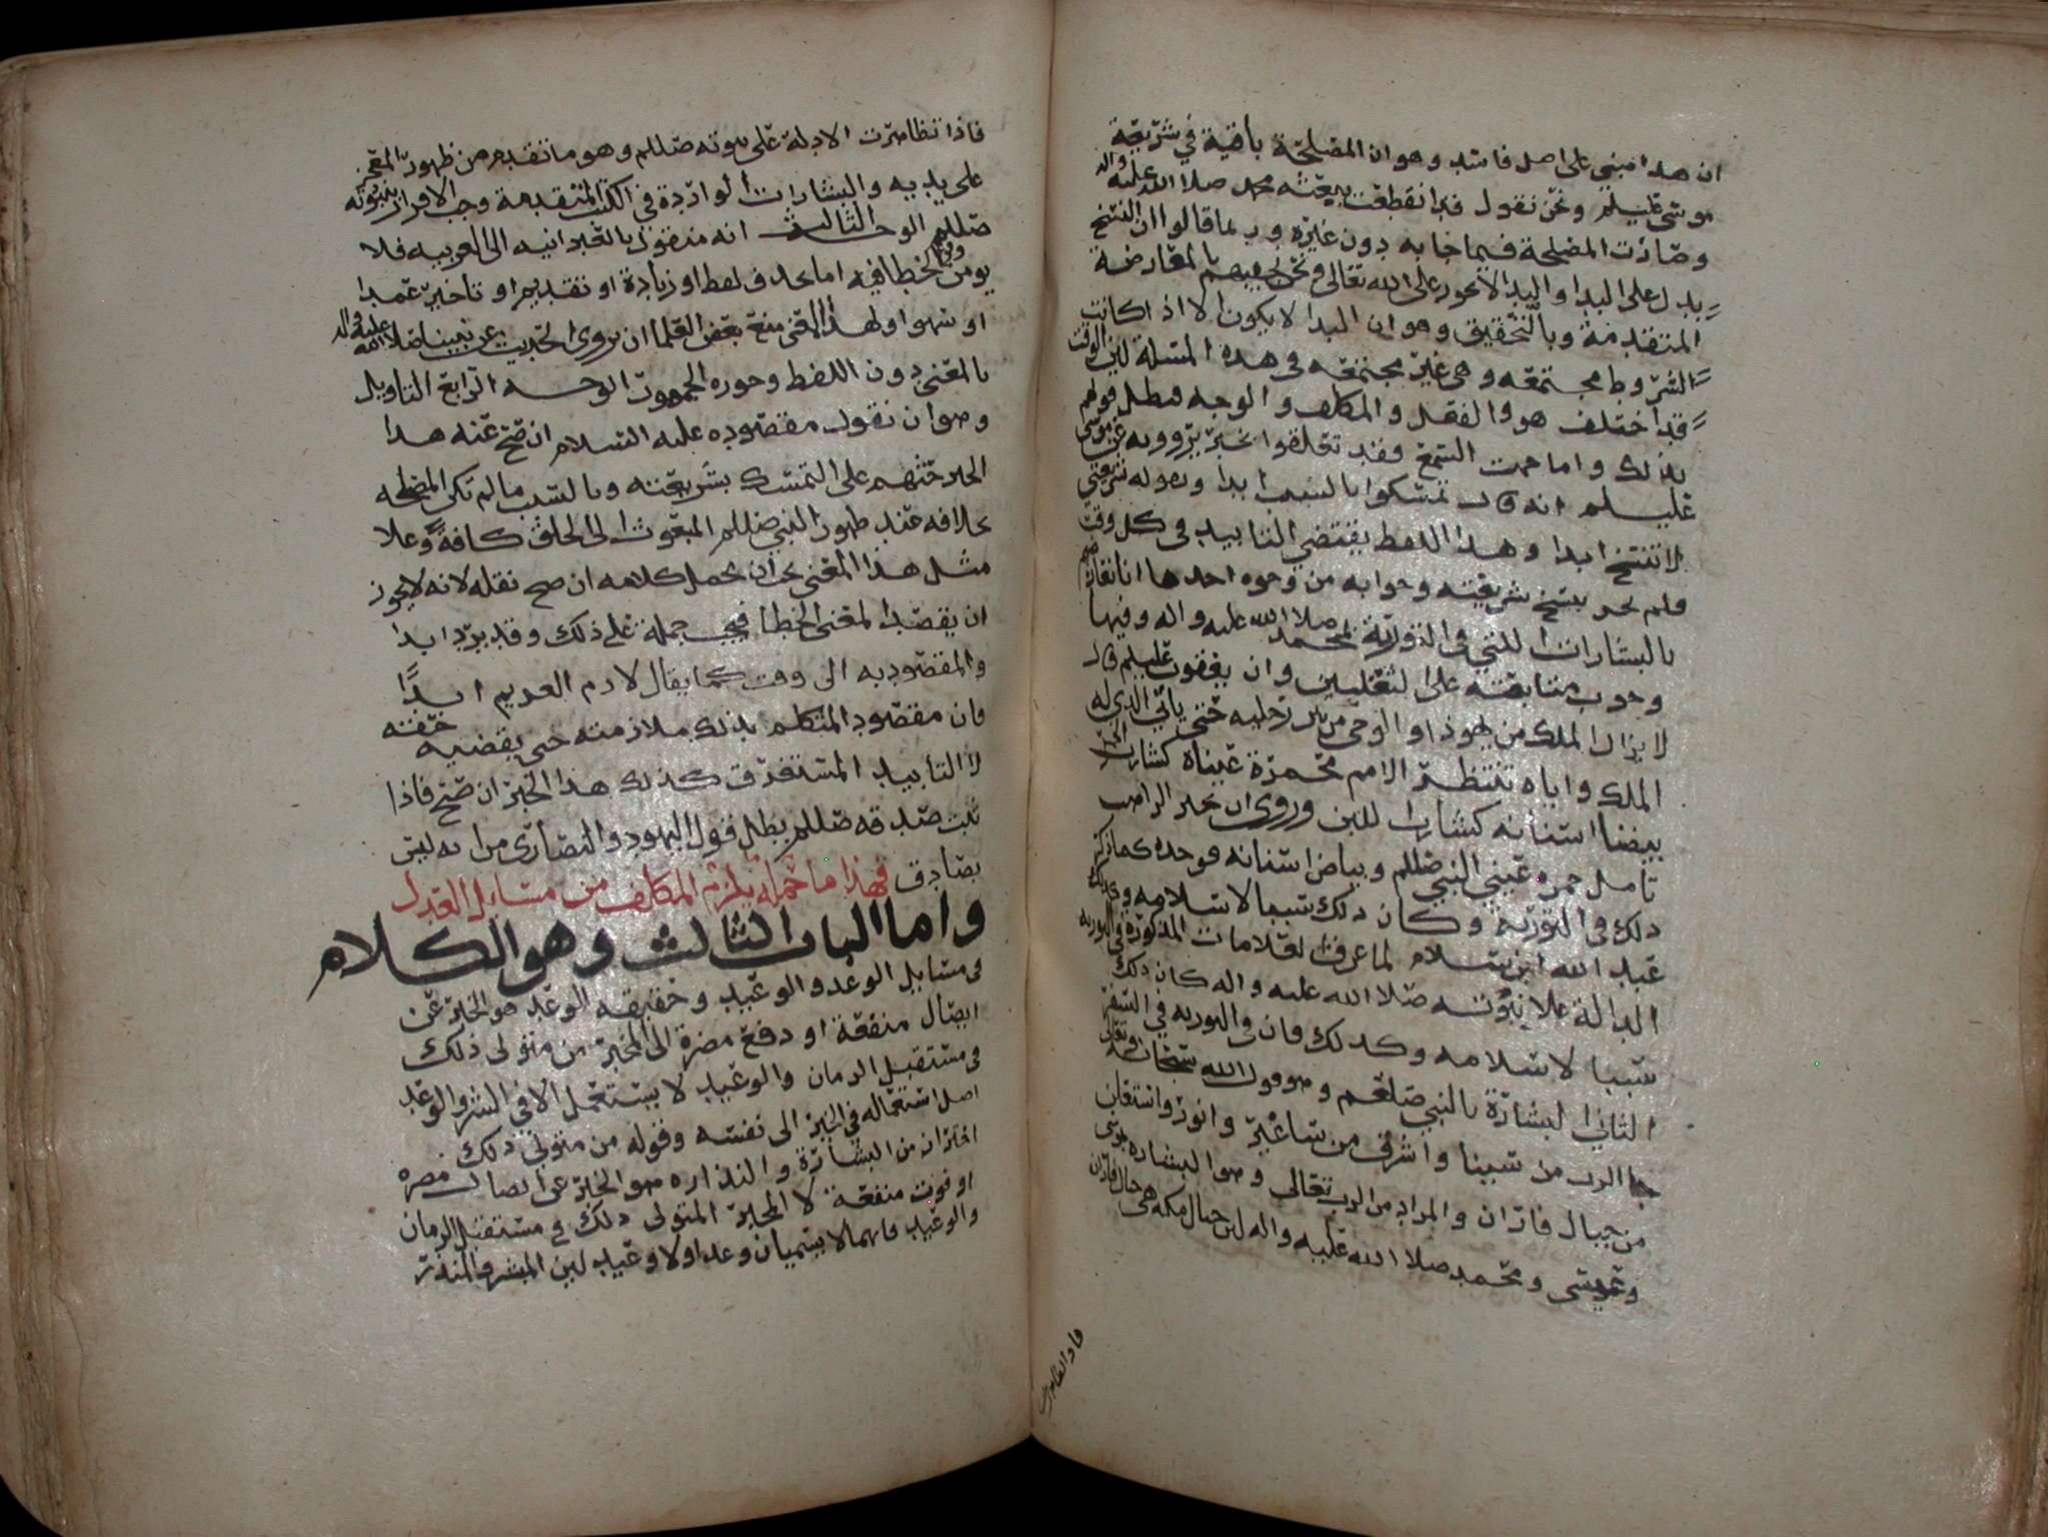 ان هدا مبني على اصل فاسد وهو ان المصلحة باقية في شريعة
موسى عليلم ونحن نقول قد انقطعت ببعثته محمد صلا الله عليه واله
وصارت المصلحة فيما جا به دون غيره وربما قالوا ان النسخ
يدل على البدا والبدا لا يجوز على الله تعالى ونحن نجيبهم بالمعارضة
المتقدمة وبالتحقيق وهو ان البدا لا يكون الا اذا كانت
الشروط مجتمعه وهي غير مجتمعه في هده المسلة لين الوقت
قد اختلف هو والفعل والمكلف والوجه فبطل قولهم
بذلك واما من جهت السمع فقد تعلقوا بخبر يروونه عن موسى
عليلم انه قال تمسكوا بالسبت ابدا وبقوله شريعتي
لا تنسخ ابدا وهدا اللفظ يقتضي التابيد في كل وقت
فلم يجز نسخ شريعته وجوابه من وجوه احدها انا نعارضهم
بالبشارات للنبي في التورية لمحمد صلا الله عليه واله وفيها
وجوب متابعته على الثقلين وان يعقوب عليلم قال
لا يزال الملك من يهوذا والوحي من بين رجليه حتى ياتي الذي له
الملك واياه تنتظر الامم محمرة عيناه كشارب الخمر
بيضا اسنانه كشارب اللبن وروي ان بحير الراهب
تامل حمرة عيني النبي صللم وبياض اسنانه فوجده كما ذكر
ذلك في التورية وكان ذلك سببا لاسلامه وكذلك
عبد الله ابن سلام لما عرف العلامات المذكورة في التوريه
الدالة علا نبوته صلا الله عليه واله كان ذلك
سببا لاسلامه وكذلك فان في التوريه في السفر
الثاني البشارة بالنبي صلعم وهو قول الله سبحانه وتعالى
جا الرب من سينا واشرق من ساعير وانور واستعلن
من جبال فاران والمراد من الرب تعالى وهو البشارة بموسى
وعيسى ومحمد صلا الله عليه واله لين جبال مكه هي جبال فاران
فاذا تظاهرت
فاذا تظاهرت الادلة على نبوته صللم وهو ما تقدم من ظهور المعجز
على يديه والبشارات الواردة في الكتب المتقدمة وجب الاقرار بنبوته
صللم الوجه الثالث انه منقول بالعبرانيه الى العربيه فلا
يومن وقوع الخطا فيه اما بحذف لفظ او زيادة او تقديم او تاخير عمدا
او سهوا ولهذا المعنى منع بعض العلما ان يروى الحديث عن نبينا صلا الله عليه واله
بالمعنى دون اللفظ وجوزه الجمهور الوجه الرابع التاويل
وهو ان نقول مقصوده عليه السلام ان صح عنه هدا
الخبر حثهم على التمسك بشريعته وبالسبت ما لم تكن المصلحه
بخلافه عند ظهور النبي صللم المبعوث الى الخلق كافة وعلا
مثل هذا المعنى يجب ان يحمل كلامه ان صح نقله لانه لا يجوز
ان يقصد المعنى الخطا فيجب حمله على ذلك وقد يرد ابدا
والمقصود به الى وقت كما يقال لازم الغريم ابدا
فان مقصود المتكلم بذلك ملازمته حتى يقضيه حقه
لا التابيد المستغرق كذلك هذا الخبر ان صح فاذا
ثبت صدقه صللم بطل قول اليهود والنصارى من انه ليس
بصادق فهذا ما جملة يلزم المكلف من مسايل العدل
واما الباب الثالث وهو الكلام
في مسايل الوعد والوعيد وحقيقه الوعد هو الخبر عن
ايصال منفعة او دفع مضرة الى المخبر من متولى ذلك
في مستقبل الزمان والوعيد لا يستعمل الا في الشر والوعد
اصل استعماله في الخبر الى نفسه وقوله من متولي ذلك
احتراز من البشارة والنذاره هو الخبر عن ايصال مضره
او فوت منفعة لا المخبر المتولى ذلك في مستقبل الزمان
والوعيد فانهما لا يسميان وعدا ولا وعيد لين المبشر والمنذر